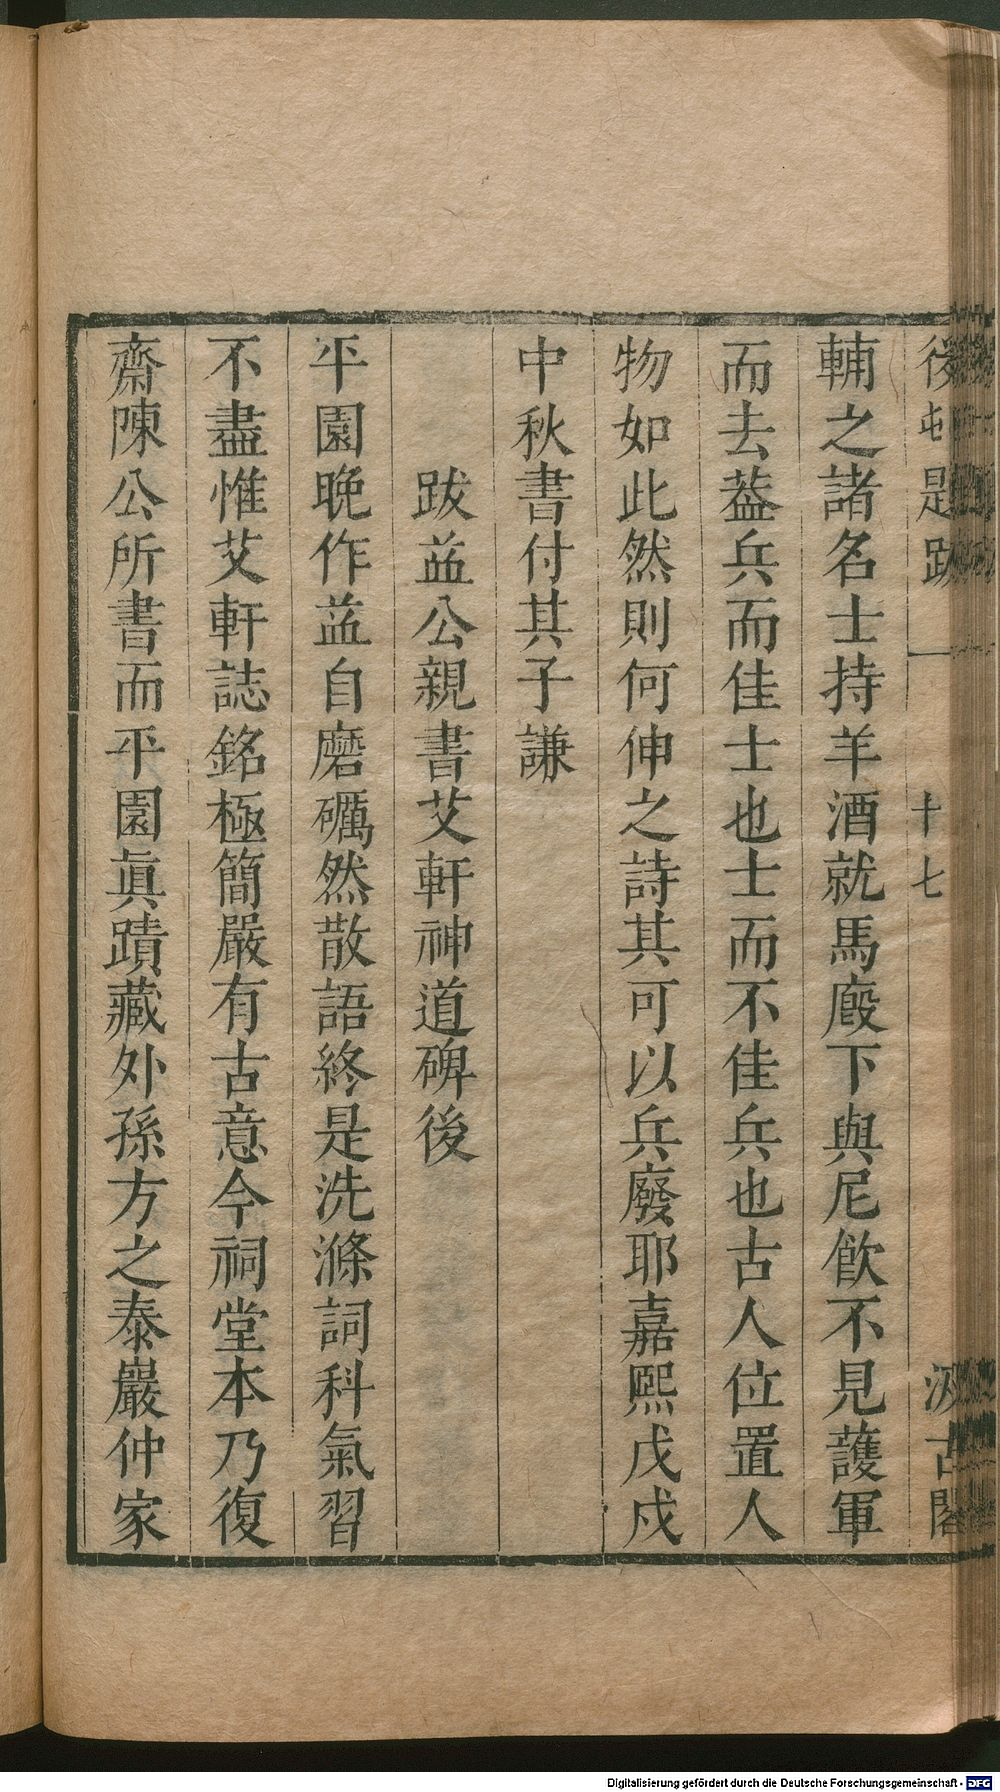 後屯是跋 一 十七 汲古閣
輔之諸名士持羊酒就馬廄下與尼飲不見護軍
而去葢兵而佳士也士而不佳兵也古人位置人
物如此然則何伸之詩其可以兵廢耶嘉熙戊戌
中秋書付其子謙
跋益公親書艾軒神道碑後
平園晚作益自磨礪然散語終是洗滌詞科氣習
不盡惟艾軒誌銘極簡嚴有古意今祠堂本乃復
齋陳公所書而平園眞蹟藏外孫方之泰嚴仲家
Digitalisierung gefördert durch die Deutsche Forschungsgemeinschaft - DFG